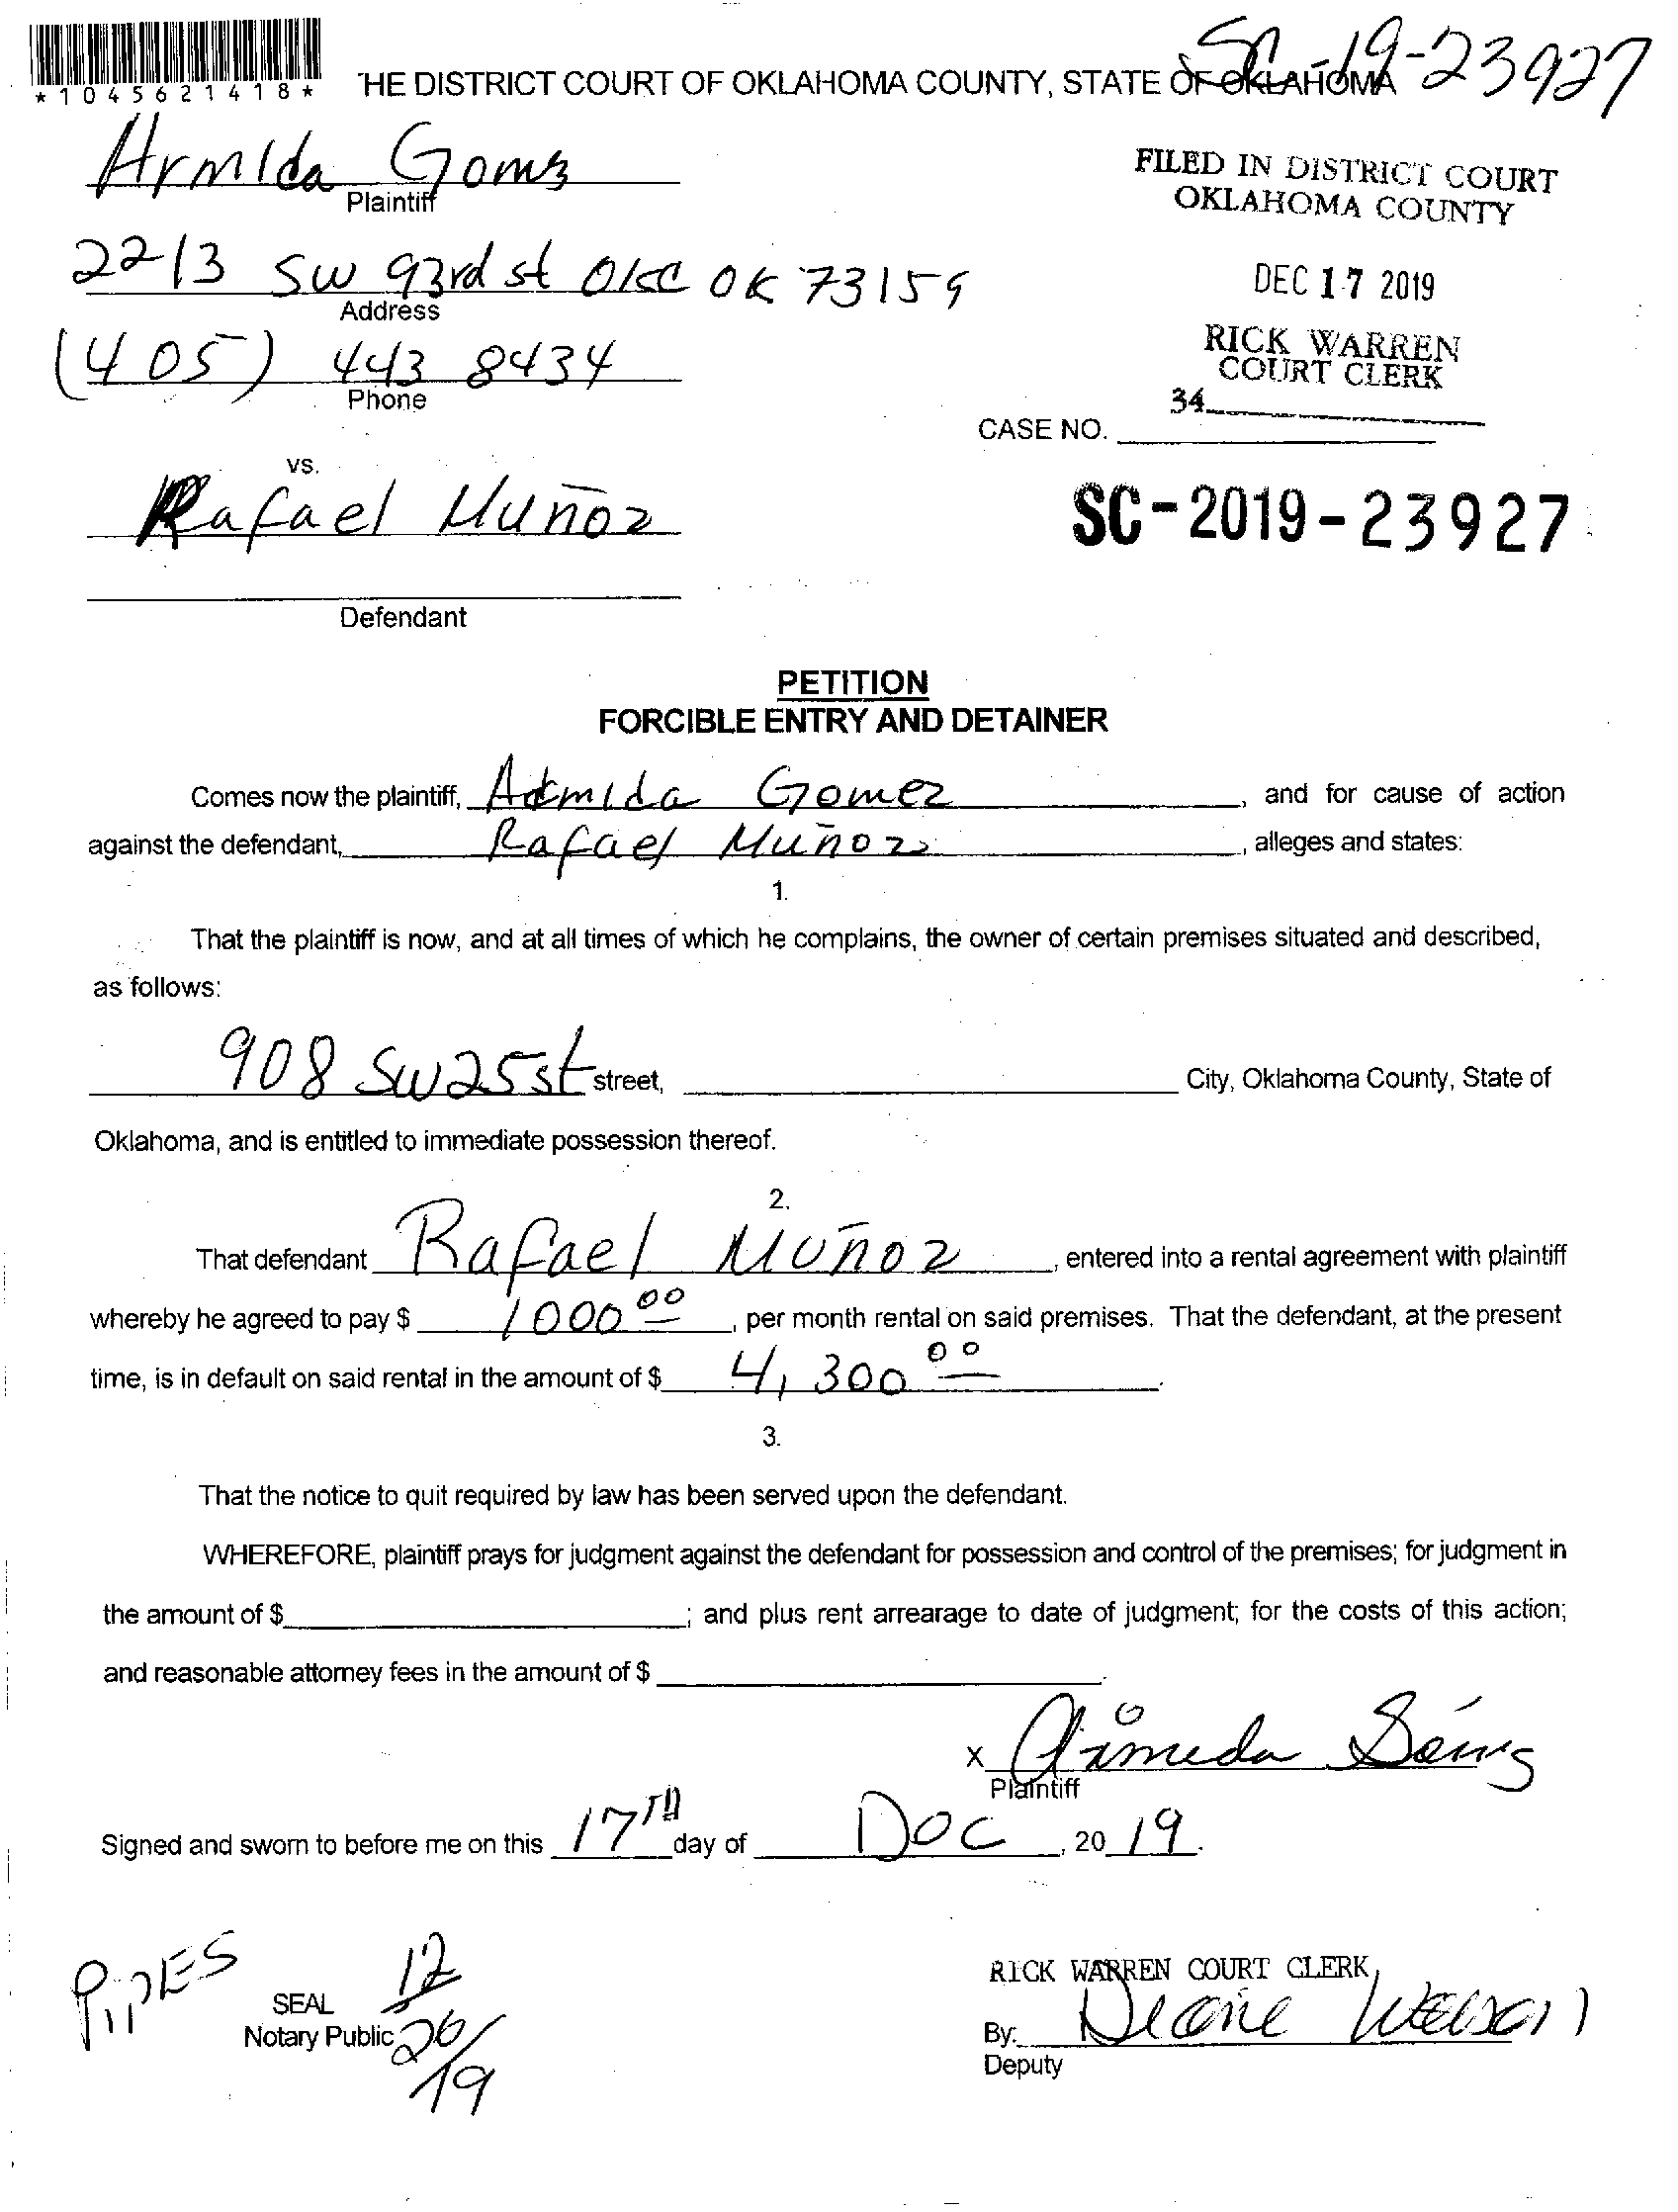 SC-19-23927
*1045621418*
THE DISTRICT COURT OF OKLAHOMA COUNTY, STATE OF OKLAHOMA
Armida Gomz
Plaintiff
FILED IN DISTRICT COURT
OKLAHOMA COUNTY
2213 SW 93rd st OKC OK 73159
Address
DEC 17 2019
(405) 443 8434
Phone
RICK WARREN
COURT CLERK
34
CASE NO.
vs.
Rafael Muñoz
SC-2019-23927
Defendant
PETITION
FORCIBLE ENTRY AND DETAINER
Comes now the plaintiff, Armida Gomez, and for cause of action
against the defendant, Rafael Muñoz, alleges and states:
1.
That the plaintiff is now, and at all times of which he complains, the owner of certain premises situated and described,
as follows:
908 SW 25 st street, City, Oklahoma County, State of
Oklahoma, and is entitled to immediate possession thereof.
2.
That defendant Rafael Muñoz, entered into a rental agreement with plaintiff
whereby he agreed to pay $ 1000 00, per month rental on said premises. That the defendant, at the present
time, is in default on said rental in the amount of $ 4,300 00.
3.
That the notice to quit required by law has been served upon the defendant.
WHEREFORE, plaintiff prays for judgment against the defendant for possession and control of the premises; for judgment in
the amount of $ ; and plus rent arrearage to date of judgment; for the costs of this action;
and reasonable attorney fees in the amount of $ .
x
Plaintiff
Signed and sworn to before me on this 17TH day of DOC, 20 19.
PIPES
12
26/
19
SEAL
Notary Public
RICK WARREN COURT CLERK
By:
Deputy